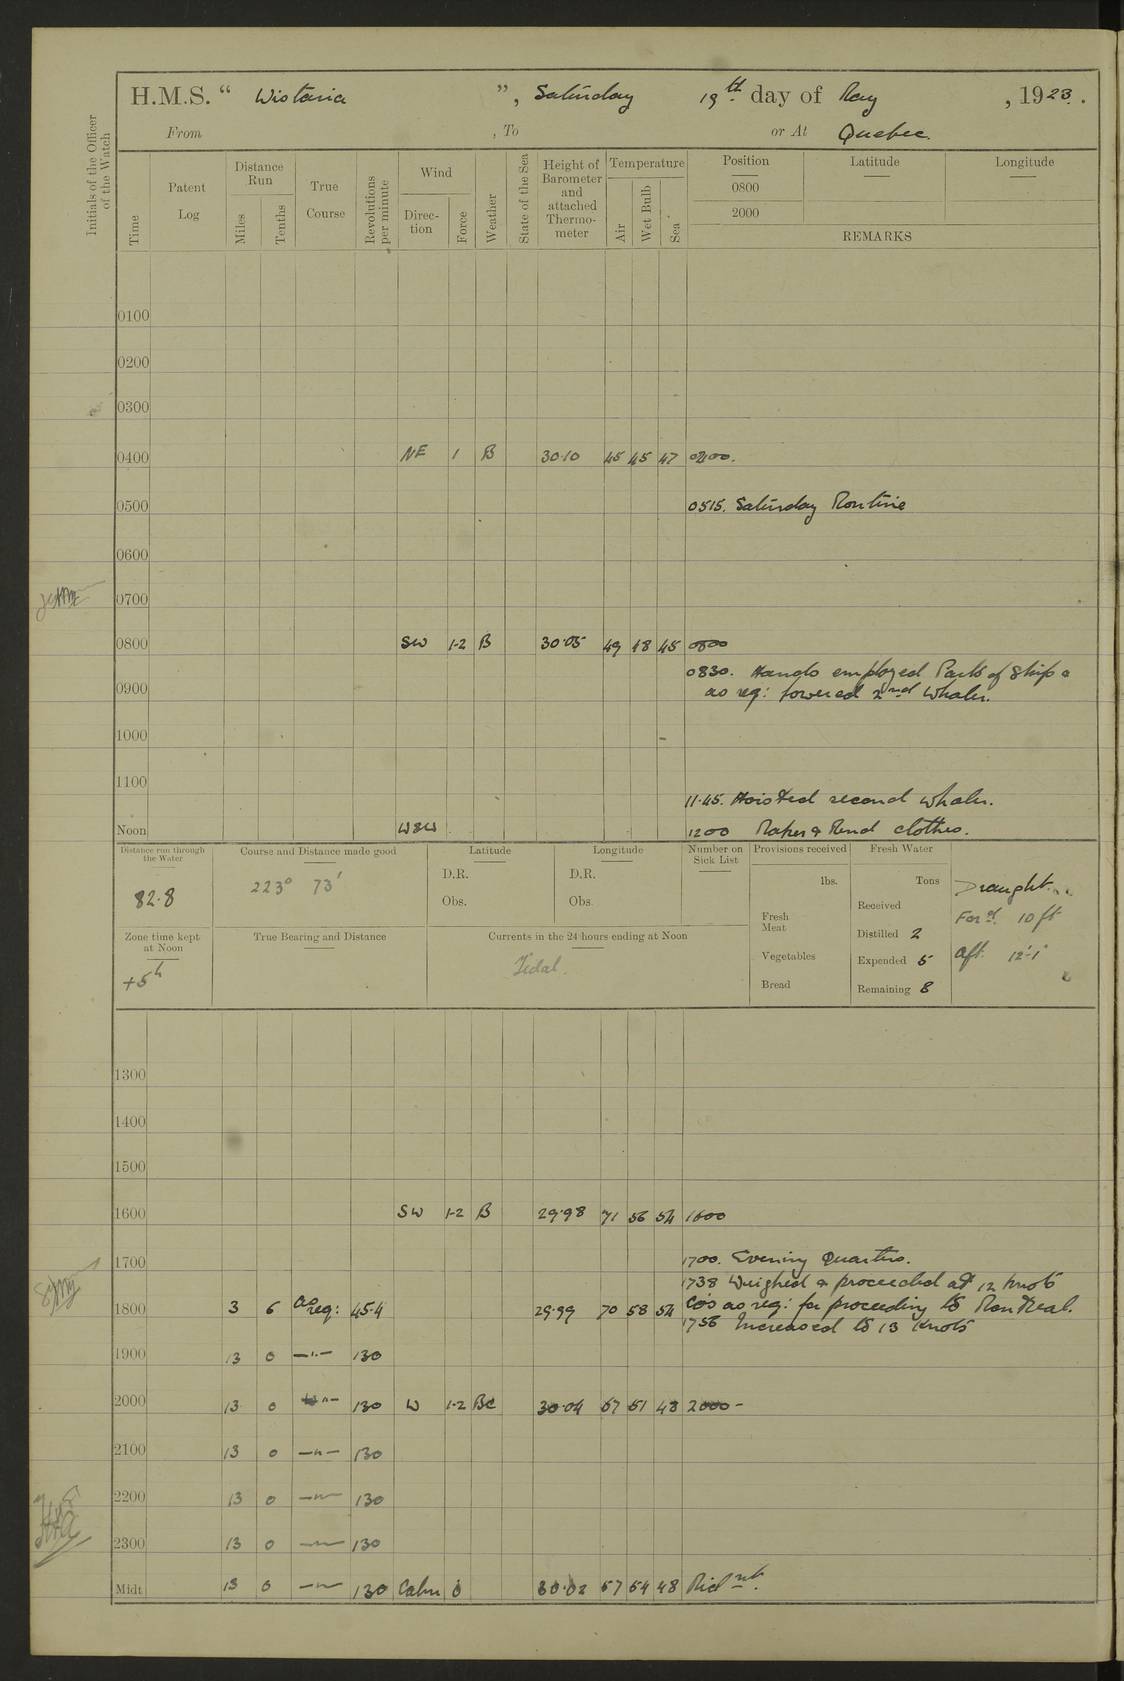 H.M.S. “ Wistaria ”, Saturday 19th day of May , 1923.
From , To or At Quebec.
Initials of the Officer of the Watch
Time
Patent Log
Distance Run
Miles
Tenths
True Course
Revolutions per minute
Wind
Direction
Force
Weather
State of the Sea
Height of Barometer and attached Thermometer
Temperature
Air
Wet Bulb
Sea
Position Latitude Longitude
0800
2000
REMARKS
0100
0200
0300
0400 NE 1 B 30·10 45 45 47 0400.
0500 0515. Saturday Routine
0600
0700
0800 SW 1-2 B 30·05 49 48 45 0800
0830. Hands employed Parts of Ship &
0900 as req: lowered 2nd Whaler.
1000
1100
11·45. Hoisted second whaler.
Noon WSW 1200 Make & Mend clothes.
Distance run through the Water
82·8
Course and Distance made good
223° 73'
Latitude
D.R.
Obs.
Longitude
D.R.
Obs
Number on Sick List
Provisions received
lbs.
Fresh Meat
Vegetables
Bread
Fresh Water
Tons
Received
Distilled 2
Expended 5
Remaining 8
Draught
Ford 10 ft
Aft. 12'·1"
Zone time kept at Noon
+5h
True Bearing and Distance
Currents in the 24 hours ending at Noon
Tidal.
1300
1400
1500
1600 SW 1-2 B 29·98 71 56 54 1600
1700 1700. Evening Quarters.
1738 Weighed & proceeded at 12 knots
1800 3 6 as req: 45·4 29·99 70 58 54 Co's as req: for proceeding to Montreal.
1756 Increased to 13 knots
1900 13 0 —"— 130
2000 13 0 —"— 130 W 1-2 BC 30·04 57 51 48 2000 -
2100 13 0 —"— 130
2200 13 0 —"— 130
2300 13 0 —"— 130
Midt 13 0 —"— 130 Calm 0 30·02 57 54 48 Midnt.